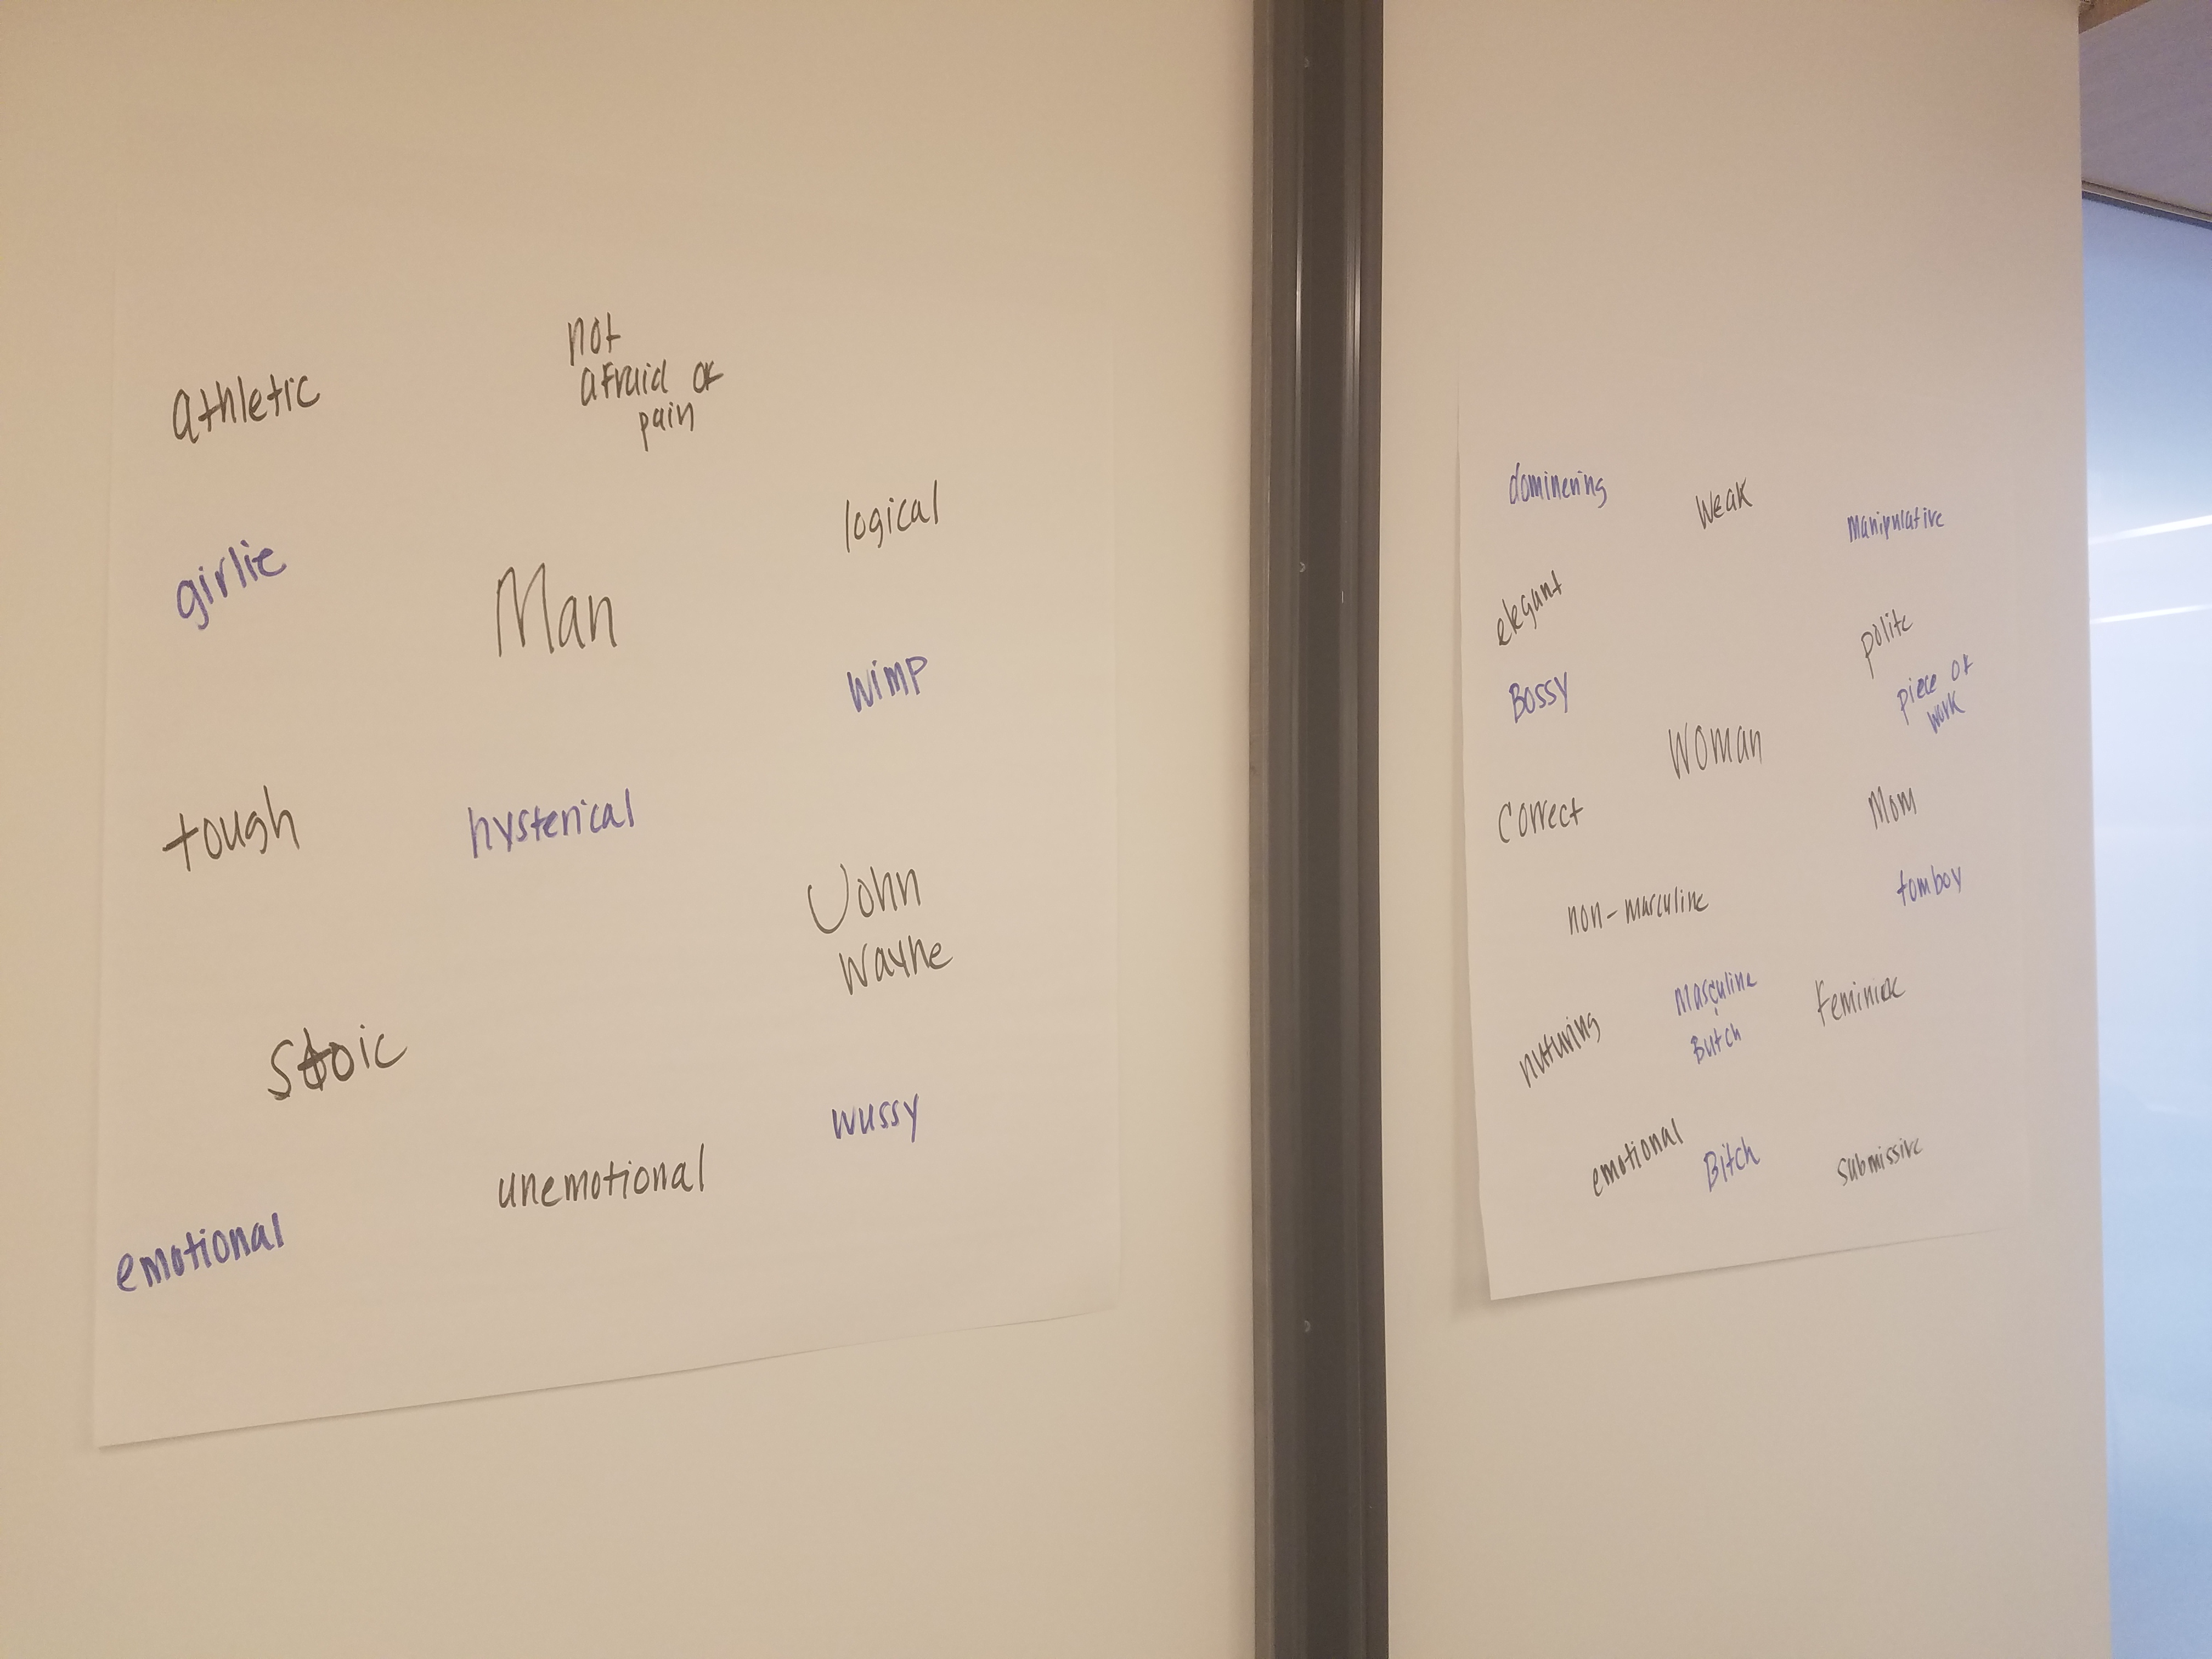 athletic
not
afraid of
pain
logical
girlie
Man
wimp
tough
hysterical
John
Wayne
stoic
wussy
unemotional
emotional
dominering
Weak
Manipulative
elegant
polite
Bossy
piece of
work
Woman
Correct
Mom
non-masculine
tomboy
Masculine
Butch
feminine
nuturing
emotional
Bitch
submissive